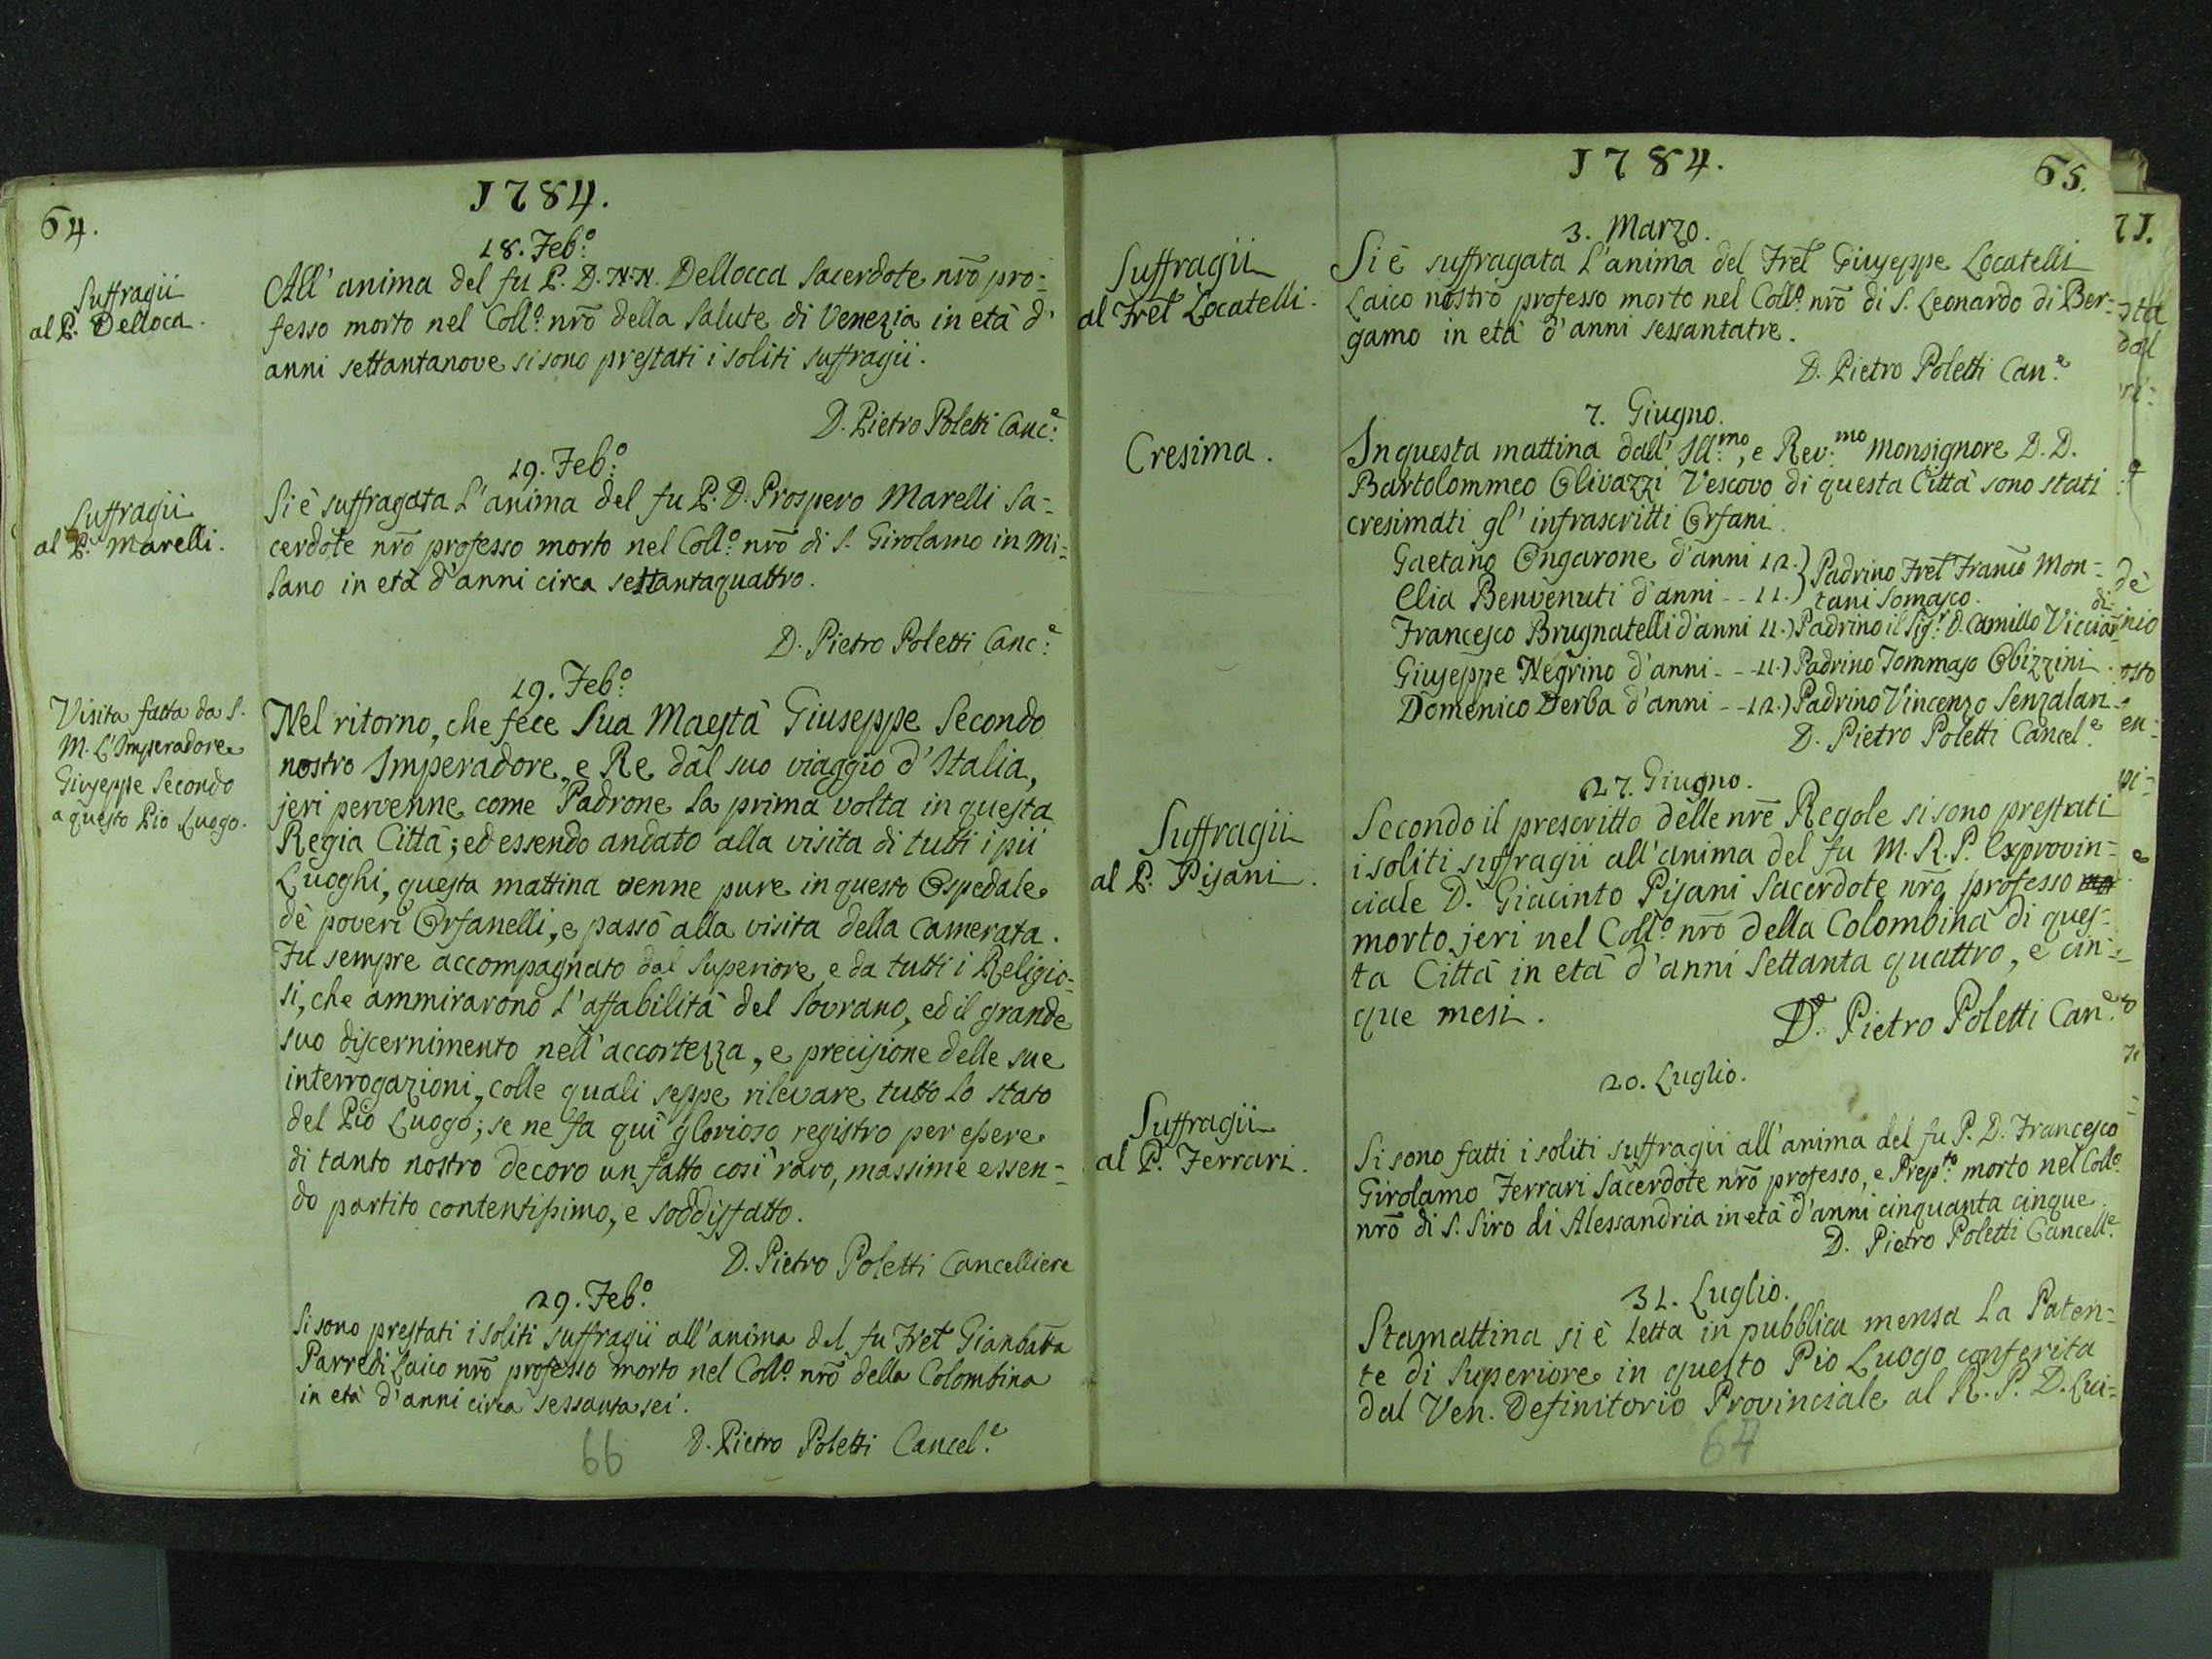 64.
1784.
18. Feb.o
Suffragii
al P. Delloca.
All' anima del fu P. D. N.N. Dellocca Sacerdote nrō pro=
fesso morto nel Coll.o nrō della Salute di Venezia in età d'
anni settantanove si sono prestati i soliti suffragii.
D. Pietro Poletti Canc.e
19. Feb.o
Suffragii
al P. Marelli.
Si è suffragata l'anima del fu P. D. Prospero Marelli Sa=
cerdote nrō professo morto nel Coll.o nrō di S. Girolamo in Mi=
lano in età d'anni circa settantaquattro.
D. Pietro Poletti Canc.e
19. Feb.o
Visita fatta da S.
M. L'Imperadore
Giuseppe Secondo
a questo Pio Luogo.
Nel ritorno, che fece Sua Maestà Giuseppe Secondo
nostro Imperadore, e Re dal suo viaggio d'Italia,
jeri pervenne come Padrone la prima volta in questa
Regia Città; ed essendo andato alla visita di tutti i pii
Luoghi, questa mattina venne pure in questo Ospedale
dè poveri Orfanelli, e passò alla visita della Camerata.
Fu sempre accompagnato dal Superiore, e da tutti i Religio=
si, che ammirarono l'affabilità del Sovrano, ed il grande
suo discernimento nell'accortezza, e precisione delle sue
interrogazioni, colle quali seppe rilevare tutto lo stato
del Pio Luogo; se ne fa quì glorioso registro per essere
di tanto nostro decoro un fatto così raro, massime essen=
do partito contentissimo, e soddisfatto.
D. Pietro Poletti Cancelliere
29. Feb.o
Si sono prestati i soliti suffragii all'anima del fu Fret Gianbatta
Parredi Laico nrō professo morto nel Coll.o nrō della Colombina
in età d'anni circa sessanta sei.
D. Pietro Poletti Cancel.e
66
1784.
65.
3. Marzo.
Suffragii
al Fret Locatelli.
Si è suffragata l'anima del Fret Giuseppe Locatelli
Laico nostro professo morto nel Coll.o nrō di S. Leonardo di Ber=
gamo in età d'anni sessantatre.
D. Pietro Poletti Can.e
7. Giugno.
Cresima.
In questa mattina dall' Ill.mo, e Rev.mo Monsignore D. D.
Bartolommeo Olivazzi Vescovo di questa Città sono stati
cresimati gl' infrascritti Orfani.
Gaetano Ongarone d'anni 12.) Padrino Fret Franco Mon=
Elia Benvenuti d'anni - - 11.) tani Somasco.
Francesco Brugnatelli d'anni 11.) Padrino il Sig.r D. Camillo Vicciardi
Giuseppe Negrino d'anni - - 11.) Padrino Tommaso Obizzini.
Domenico Derba d'anni - - 12.) Padrino Vincenzo Senzalari
D. Pietro Poletti Cancel.e
27. Giugno.
Suffragii
al P. Pisani.
Secondo il prescritto delle nrē Regole si sono prestati
i soliti suffragii all'anima del fu M. R. P. Exprovin=
ciale D. Giacinto Pisani Sacerdote nrō professo
morto jeri nel Coll.o nrō della Colombina di ques=
ta Città in età d'anni settanta quattro, e cin=
que mesi.
D. Pietro Poletti Can.e
20. Luglio.
Suffragii
al P. Ferrari.
Si sono fatti i soliti suffragii all'anima del fu P. D. Francesco
Girolamo Ferrari Sacerdote nrō professo, e Prep.to morto nel Coll.o
nrō di S. Siro di Alessandria in età d'anni cinquanta cinque.
D. Pietro Poletti Cancell.e
31. Luglio.
Stamattina si è letta in pubblica mensa la Paten=
te di Superiore in questo Pio Luogo conferita
dal Ven. Definitorio Provinciale al R. P. D. Lui=
67
71.